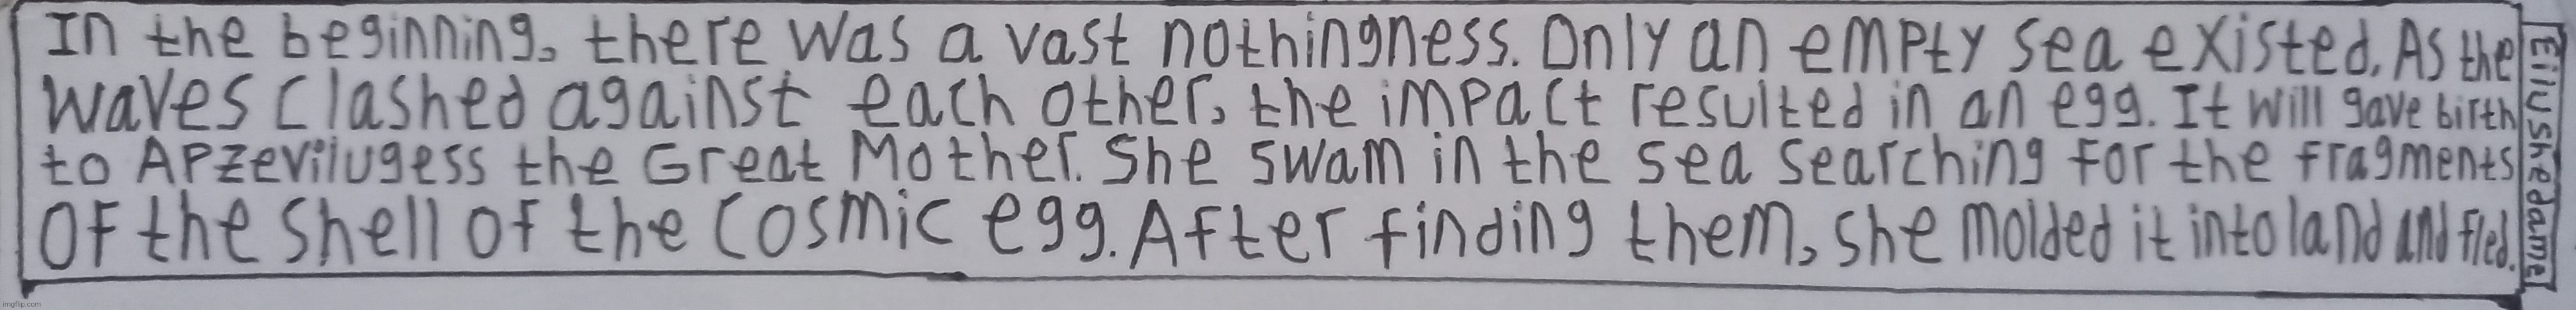 In the beginning, there was a vast nothingness. Only an empty sea existed. As the
waves clashed against each other, the impact resulted in an egg. It will gave birth
to Apzevilugess the Great Mother. She swam in the sea searching for the fragments
of the shell of the cosmic egg. After finding them, she molded it into land and fled.
Eilushedamel
imgflip.com